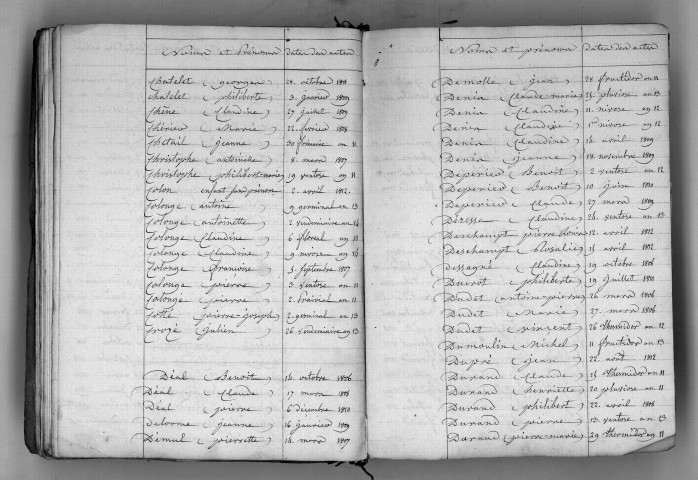 Noms et Prénoms dates des actes
Chatelet (george) 28. octobre 1811
Chatelet (philiberte) 3. janvier 1809
Chêne (Claudine) 27 juillet 1809
Chérier (Marie) 22. fevrier 1808
Chetail (jeanne) 30 frimaire an 11
Christophe (antoinette) 8. mars 1807
Christophe (philibert-marie) 19 ventose an 11
Colon enfant sans prénom 2. avril 1812.
Colonge (antoine) 9 germinal an 13
Colonge (antoinette) 2 vendemiaire an 14
Colonge (Claudine) 6 floreal an 11
Colonge (Claudine) 9 nivose an 10
Colonge (françoise) 5. Septembre 1807
Colonge (pierre) 3. ventose an 11
Colonge (pierre) 2. Prairial an 11
Cotte (pierre-joseph) 2 germinal an 13
Crozé (julien) 26 vendemiaire an 13
Déal (Benoît) 14. octobre 1806
Déal (Claude) 17 mars 1808
Déal (pierre) 6 décembre 1810
Delorme (jeanne) 16 janvier 1809
Démul (pierrette) 14. mars 1807
Noms et prénoms dates des actes
Demolle (jean) 28 fructidor an 11
Denis (Claude marie) 25 pluviose an 13
Denis (Claudine) 11. nivose an 12
Denis (Claudine) 1er nivose an 12
Denis (Claudine) 16 avril 1809
Denis (jeanne) 14 novembre 1809
Deperier (Benoît) 2 ventose an 12
Deperier (Benoît) 10 juin 1810
Deperier (Claude) 27 mars 1809
Déresse (Claudine) 24. ventose an 13
Deschampt 12. avril 1812
Deschampt (Rosalie) 15 avril 1812
Dessagne (Claudine) 19 octobre 1806
Durot (philiberte) 19 juillet 1811
Dudet (antoine-pierre) 26 mars 1806
Dudet (Marie) 27. mars 1806
Dudet (vincent) 26 thermidor an 12
Dumoulin (Michel) 11 fructidor an 13
Dupré (jean) 22. août 1812
Durand (Claude) 15 thermidor an 11
Durand (henriette) 20 pluviose an 11
Durand (philibert) 22. avril 1806
Durand (pierre) 13 ventose an 13
Durand (pierre-marie) 29 thermidor an 11